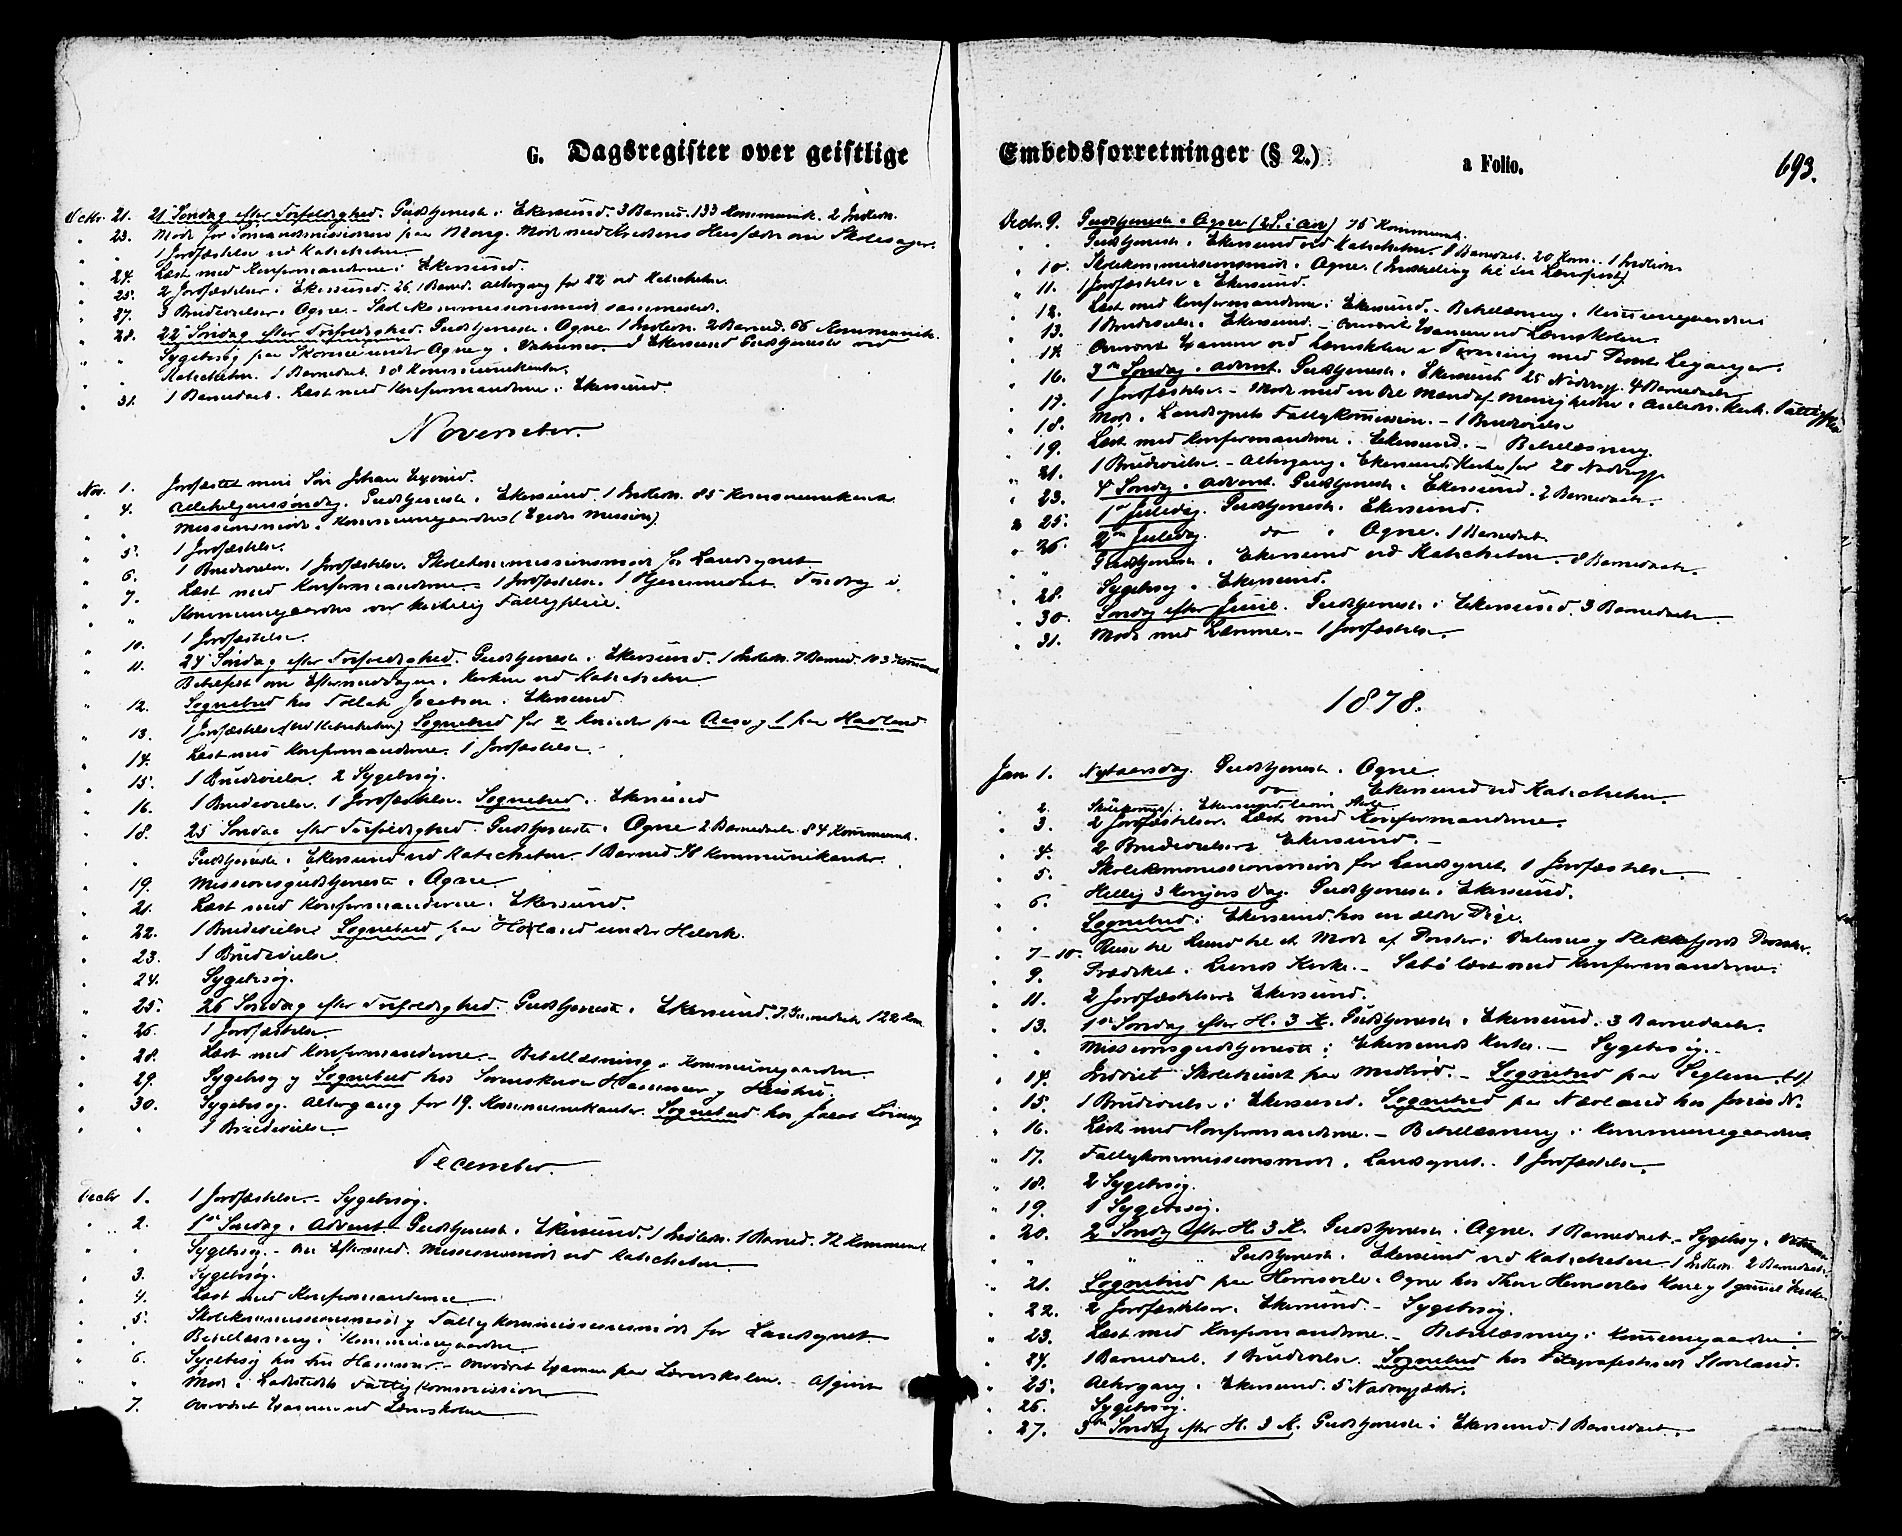 G. Dagsregister over geistlige
Octbr. 21. 21 Søndag efter Trefoldighed. Gudstjeneste i Ekersund. 3 Barned. 133 Kommunik. 2 Introd.
" 23. Møde for Sømandsmissionen paa Møde med Kredsens om Skolesager.
" " 1 Jordfæstelse ved Katecheten.
" 24. Læst med Konfirmanderne i Ekersund.
" 25. 2 Jordfæstelser i Ekersund. 1 Barned. Altergang for 22 ved Katecheten.
" 27. 3 Brudevielser i Ogne. - Skolekommissionsmøde sammesteds.
" 28. 22 Søndag efter Trefoldighed. Gudstjeneste i Ogne. 1 Introd. 2 Barned. 66 Kommunik.
Sygebesøg paa under Ogne og i I Ekersund Gudstjeneste ved
" " Katecheten. 1 Barnedaab. 38 Kommunikanter.
" 31. 1 Barnedaab. Læst med Konfirmanderne i Ekersund.
November.
Nov. 1. Jordfæstet min Søn Johan
" 4. Allehelgenssøndag. Gudstjeneste i Ekersund. 1 Introd. 85 Kommunikanter
" " Missionsmøde i Kommunegaarden (Egedes Mission)
" 5. 1 Jordfæstelse.
" 6. 1 Brudevielse. 1 Jordfæstelse. Skolekommissionsmøde for Landsognet
" 7. Læst med Konfirmanderne. 1 Jordfæstelse. 1 Hjemmedøbt. Foredrag i
" " Kommunegaarden over kirkelig Fattigpleie.
" 10. 1 Jordfæstelse.
" 11. 24 Søndag efter Trefoldighed. Gudstjeneste i Ekersund. 1 Introd. 7 Barned. 103 Kommunik.
om Eftermiddagen i Kirken ved Katecheten
" 12. Sognebud hos Tollak Jacobsen i Ekersund
" 13. 1 Jordfæstelse (ved Katecheten) Sognebud for 2 Kvinder paa og 1 paa Hadland
" 14. Læst med Konfirmanderne. 1 Jordfæstelse.
" 15. 1 Brudevielse. 2 Sygebesøg.
" 16. 1 Brudevielse. 1 Jordfæstelse. Sognebud i Ekersund
" 18. 25 Søndag efter Trefoldighed. Gudstjeneste i Ogne 2 Barnedaab. 84 Kommunik.
" " Gudstjeneste i Ekersund ved Katecheten. 1 Barned. 38 Kommunikanter.
" 19. Missionsgudstjeneste i Ogne.
" 21. Læst med Konfirmanderne i Ekersund.
" 22. 1 Brudevielse. Sognebud paa under
" 23. 1 Brudevielse.
" 24. Sygebesøg.
" 25. 26 Søndag efter Trefoldighed. Gudstjeneste i Ekersund. 122 Kom.
" 26. 1 Jordfæstelse
" 28. Læst med Konfirmanderne. - Bibellæsning i Kommunegaarden.
" 29. Sygebesøg og Sognebud hos Hammer og Hustru.
" 30. Sygebesøg. Altergang for 19 Kommunikanter. Sognebud hos
" " 1 Brudevielse.
December.
Decbr 1. 1 Jordfæstelse. Sygebesøg.
" 2. 1ste Søndag i Advent. Gudstjeneste i Ekersund. 1 Introd. 1 Barned. 72 Kommunik.
" " Sygebesøg. - Om Eftermid. Missionsmøde ved Katecheten.
" 3. Sygebesøg.
" 4. Læst med Konfirmanderne
" 5. Skolekommissionsmøde og Fattigkommissionsmøde for Landsognet
" " Bibellæsning i Kommunegaarden.
" 6. Sygebesøg hos Fru Hammer. - Overværet Examen paa Lærerskolen. -
" " Møde i Ladestedets Fattigkommission
" 7. Overværet Examen ved Lærerskolen
Embedsforretninger (§ 2.)
a Folio.
693.
Decbr. 9. Gudstjeneste i Ogne (2 S. i Adv.) 75 Kommunik.
" " Gudstjeneste i Ekersund ved Katecheten. 1 Barnedaab. 20 Kom. 1 Introd.
" 10. Skolekommissionsmøde i Ogne. (Indstilling til en Lærerpost)
" 11. 1 Jordfæstelse i Ekersund.
" 12. Læst med Konfirmanderne i Ekersund. - Bibellæsning i Kommunegaarden
" 13. 1 Brudevielse i Ekersund. - Overværet Examen ved Lærerskolen.
" 14. Overværet Examen ved Lærerskolen i Forening med Provst Leganger.
" 16. 3die Søndag i Advent. Gudstjeneste i Ekersund 25 Nadverg. 4 Barnedaab
" 17. 1 Jordfæstelse. - Møde med en Del Mænd af Menigheden i Kirk. Fattigpleie
" 18. Møde i Landsognets Fattigkommission. - 1 Brudevielse
" 19. Læst med Konfirmanderne i Ekersund. - Bibellæsning.
" 21. 1 Brudevielse. - Altergang i Ekersunds Kirke for 20 Nadverg.
" 23. 4 Søndag i Advent. Gudstjeneste i Ekersund. 2 Barnedaab.
" 25. 1ste Juledag. Gudstjeneste i Ekersund.
" 26. 2den Juledag. do i Ogne. 1 Barnedaab.
" " Gudstjeneste i Ekersund ved Katecheten. 8 Barnedaab.
" 28. Sygebesøg i Ekersund.
" 30. Søndag efter Juul. Gudstjeneste i Ekersund. 3 Barnedaab
" 31. Møde med Lærerne. - 1 Jordfæstelse.
1878.
Jan 1. Nytaarsdag. Gudstjeneste i Ogne.
do i Ekersund ved Katecheten.
" 2.
" 3. 2 Jordfæstelser. Læst med Konfirmanderne.
" 4. 2 Brudevielser i Ekersund.
" 5. Skolekommissionsmøde for Landsognet. 1 Jordfæstelse.
" 6. Hellig 3 Kongers Dag. Gudstjeneste i Ekersund.
" " Sognebud i Ekersund hos en ældre Pige.
" 7-10. Reise til Lund til et Møde af Præster i Dalernes og Flekkefjords Provstier.
" 9. Prædiket i Lunds Kirke. - læst med Konfirmanderne.
" 11. 2 Jordfæstelser i Ekersund.
" 13. 1ste Søndag efter H. 3 K. Gudstjeneste i Ekersund. 3 Barnedaab.
" " Missionsgudstjeneste i Ekersunds Kirke. - Sygebesøg.
" 14. Indviet Skolehuset paa - Sognebud paa Seglem.
" 15. 1 Brudevielse i Ekersund. Sognebud paa Nævland hos Jonas N.
" 16. Læst med Konfirmanderne. - Bibellæsning i Kommunegaarden
" 17. Fattigkommissionsmøde i Landsognet. 1 Jordfæstelse.
" 18. 2 Sygebesøg.
" 19. 1 Sygebesøg.
" 20. 2 Søndag efter H. 3 K. Gudstjeneste i Ogne. 1 Barnedaab. - Sygebesøg i
" " Gudstjeneste i Ekersund ved Katecheten. 1 Introd. 2 Barnedaab.
" 21. Sognebud paa i Ogne hos Kone og 1 gammel
" 22. 2 Jordfæstelser i Ekersund. - Sygebesøg.
" 23. Læst med Konfirmanderne. - Bibellæsning i Kommunegaarden.
" 24. 1 Barnedaab. 1 Brudevielse. Sognebud hos
" 25. Altergang i Ekersund. 5 Nadvergjæster.
" 26. Sygebesøg.
" 27. 3die Søndag efter H. 3 K. Gudstjeneste i Ekersund. 1 Barnedaab.